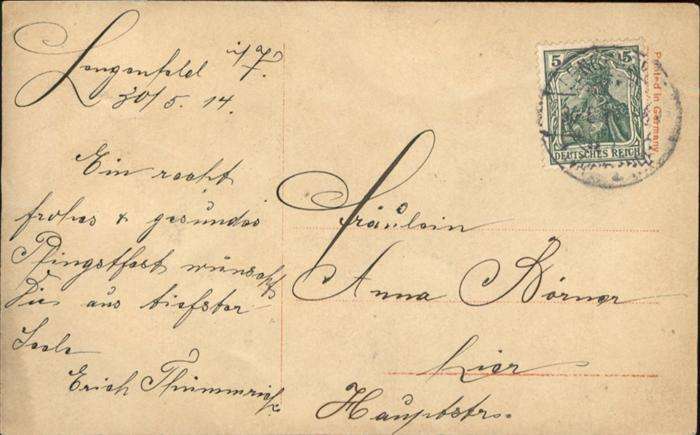 Lengenfeld i/V.
30/5. 14.
Ein recht
frohes & gesundes
Pfingstfest wünscht
Die aus tiefster
Seele
Erich Thümmrich
Fräulein
Anna Börner
hier
Hauptstr.
5 5
DEUTSCHES REICH
Printed in Germany